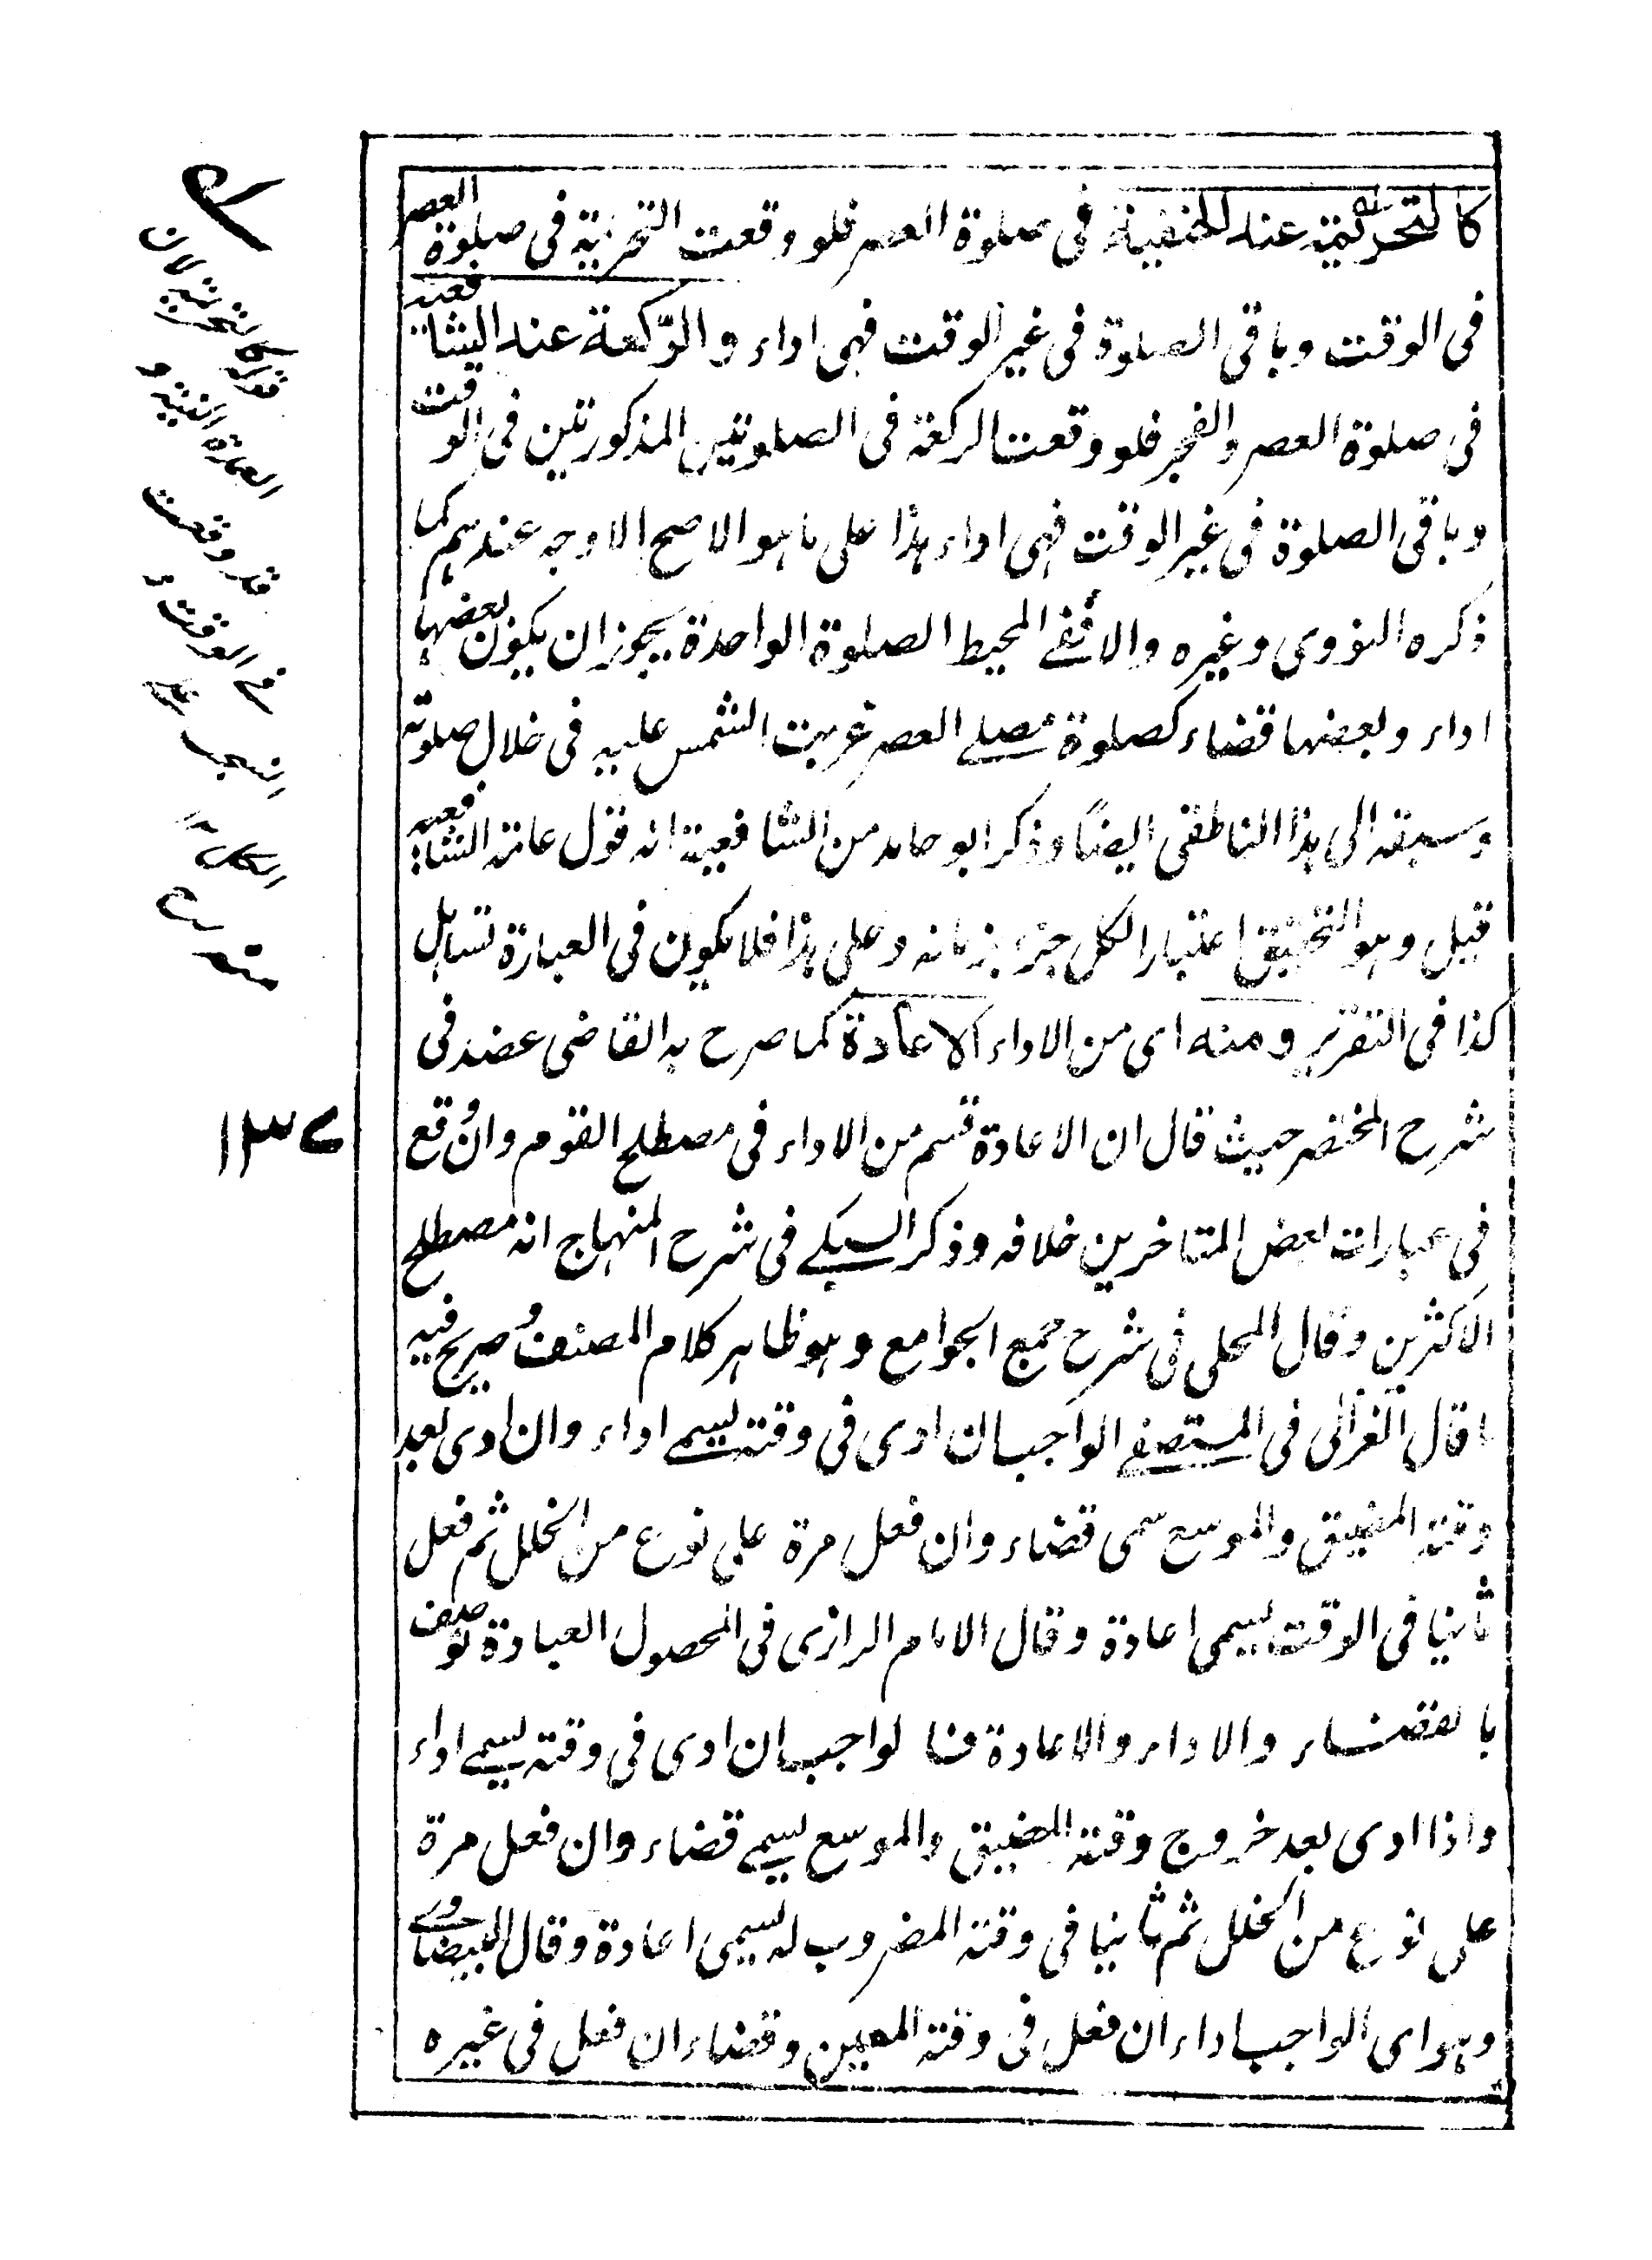 كالتحريمة عند الحنفية في صلوة العصر فلو وقعت التحريمة في صلوة العصر
في الوقت وباقي الصلوة في غير الوقت فهي اداء والرّكعة عند الشافعية
في صلوة العصر والفجر فلو وقعت الركعة في الصلوتين المذكورتين في الوقت
وباقي الصلوة في غير الوقت فهي اداء هذا على ما هو الاصح الاوجه عندهم كما
ذكره النووي وغيره والا ففي المحيط الصلوة الواحدة يجوز ان يكون بعضها
اداء وبعضها قضاء كصلوة مصلي العصر غربت الشمس عليه في خلال صلوته
وسبقه الى هذا الناطفي ايضاً وذكر ابو حامد من الشافعية انه قول عامة الشافعية
قيل وهو التحقيق اعتبارا لكل جزء بزمانه وعلى هذا فلا يكون في العبارة تساهل
كذا في التقرير ومنه اي من الاداء الاعادة كما صرح به القاضي عضد في
شرح المختصر حيث قال ان الاعادة قسم من الاداء في مصطلح القوم وان وقع
في عبارات بعض المتاخرين خلافه وذكر السبكي في شرح المنهاج انه مصطلح
الاكثرين وقال المحلي في شرح جمع الجوامع وهو ظاهر كلام المصنف وصريح فيه
قال الغزالي في المستصفي الواجب ان ادى في وقته يسمي اداء وان ادى بعد
وقته المضيق والموسع سمى قضاء وان فعل مرة على نوع من الخلل ثم فعل
ثانيا في الوقت يسمى اعادة وقال الامام الرازي في المحصول العبادة توصف
بالقضاء والاداء والاعادة فالواجب ان ادى في وقته يسمي اداء
واذا ادى بعد خروج وقته المضيق والموسع يسمي قضاء وان فعل مرة
على نوع من الخلل ثم ثانيا في وقته المضروب له يسمى اعادة وقال البيضاوي
وهو اي الواجب اداء ان فعل في وقته المعين وقضاء ان فعل في غيره
١٣٧